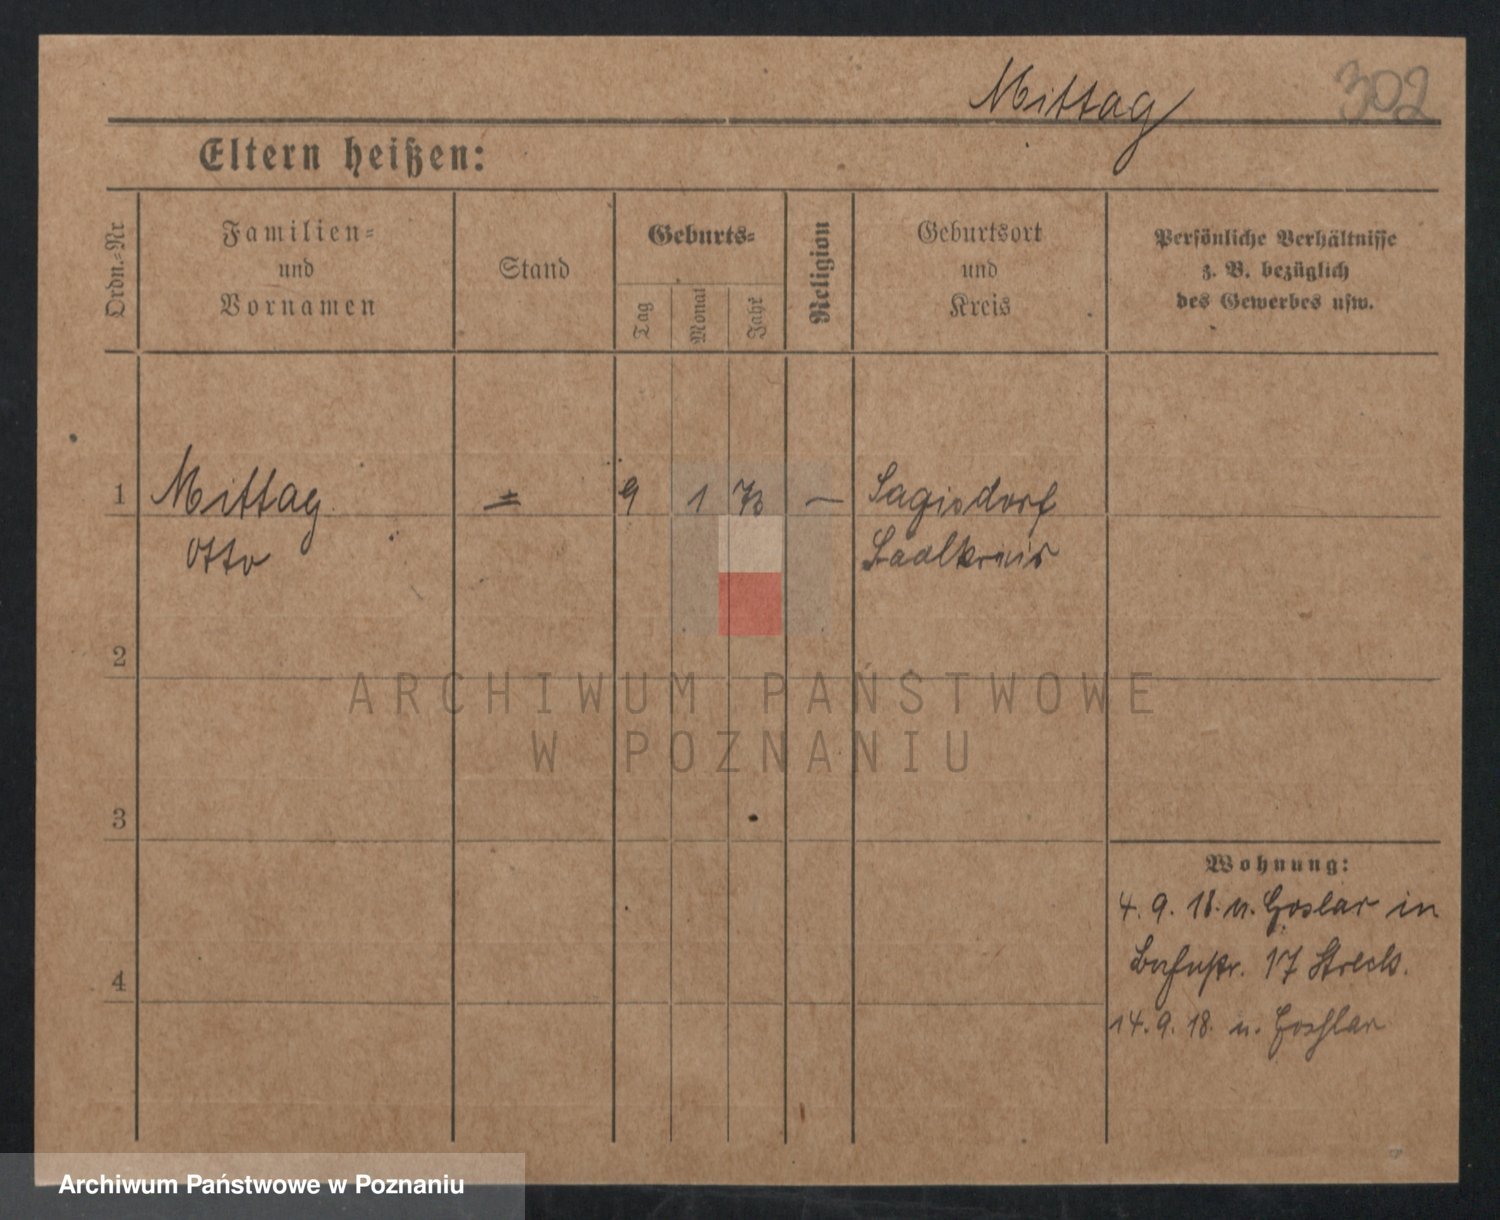 Mittag 302
Eltern heißen:
Ordn.-Nr
Familien-
und
Vornamen
Stand
Geburts-
Tag
Monat
Jahr
Religion
Geburtsort
und
Kreis
Persönliche Verhältnisse
z. B. bezüglich
des Gewerbes usw.
1 Mittag = 9 1 73 — Sagisdorf
Otto Saalkreis
2
ARCHIWUM PAŃSTWOWE
W POZNANIU
3
Wohnung:
4. 9. 18. n. Goslar in
17
4
14. 9. 18. n.
Archiwum Państwowe w Poznaniu